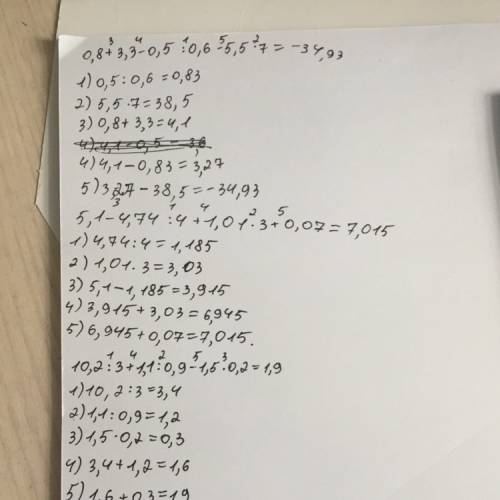 0,8+3,3-0,5:0,6-5,5·7=-34,93
1) 0,5:0,6=0,83
2) 5,5·7=38,5
3) 0,8+3,3=4,1
4) 4,1-0,5=
4) 4,1-0,83=3,27
5) 3,27-38,5=-34,93
5,1-4,74:4+1,01·3+0,07=7,015
1) 4,74:4=1,185
2) 1,01·3=3,03
3) 5,1-1,185=3,915
4) 3,915+3,03=6,945
5) 6,945+0,07=7,015.
10,2:3+1,1:0,9-1,5·0,2=1,9
1) 10,2:3=3,4
2) 1,1:0,9=1,2
3) 1,5·0,2=0,3
4) 3,4+1,2=1,6
5) 1,6+0,3=1,9